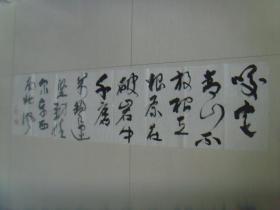 咬定
青山不
放松立
根原在
破岩中
千磨
万击还
坚劲任
尔东西
南北风